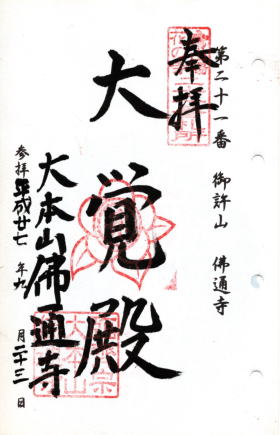 第二十一番　御許山　佛通寺
奉拝
大覚殿
大本山佛通寺
参拝 平成廿七年九月二十三日